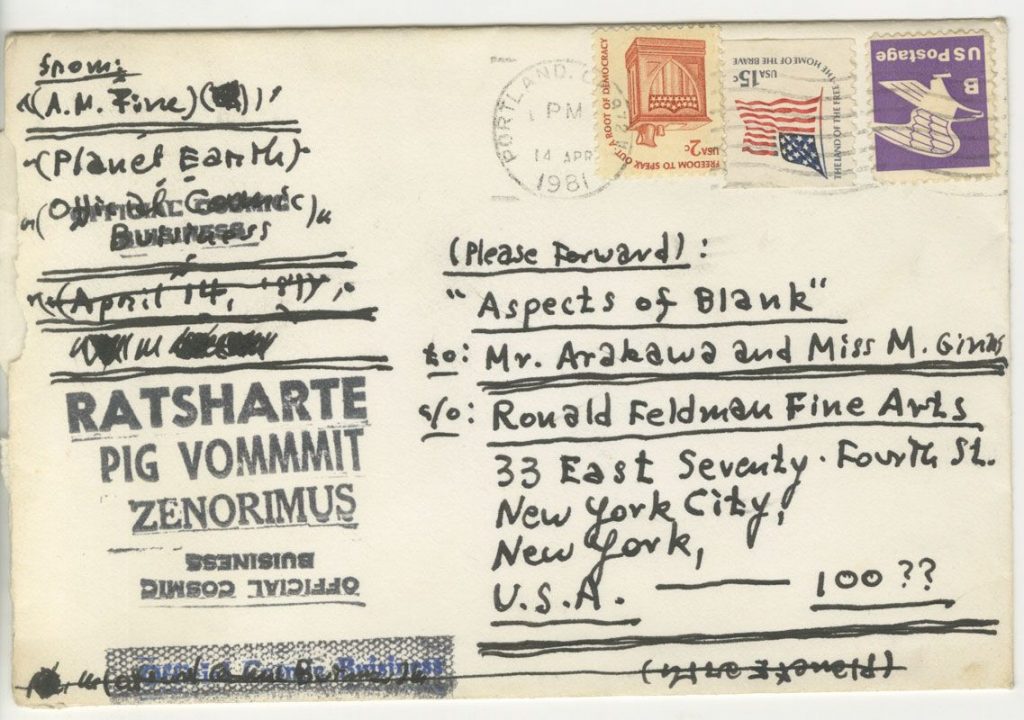 from:
"(A.M. Fine)( )"
"(Planet Earth)"
"(Official Cosmic)"
Buisness
"(April 14, '81)".
RATSHARTE
PIG VOMMMIT
ZENORIMUS
OFFICIAL COSMIC
BUISINESS
Official Cosmic Buisiness
PORTLAND, O
PM
14 APR
1981
FREEDOM TO SPEAK OUT-A ROOT OF DEMOCRACY
USA 2c
THE LAND OF THE FREE THE HOME OF THE BRAVE
USA 15c
US Postage
B
(Please Forward):
"Aspects of Blank"
to: Mr. Arakawa and Miss M. Gins
c/o: Ronald Feldman Fine Arts
33 East Seventy-Fourth St.
New York City,
New York,
U.S.A. 100??
(Planet Earth)